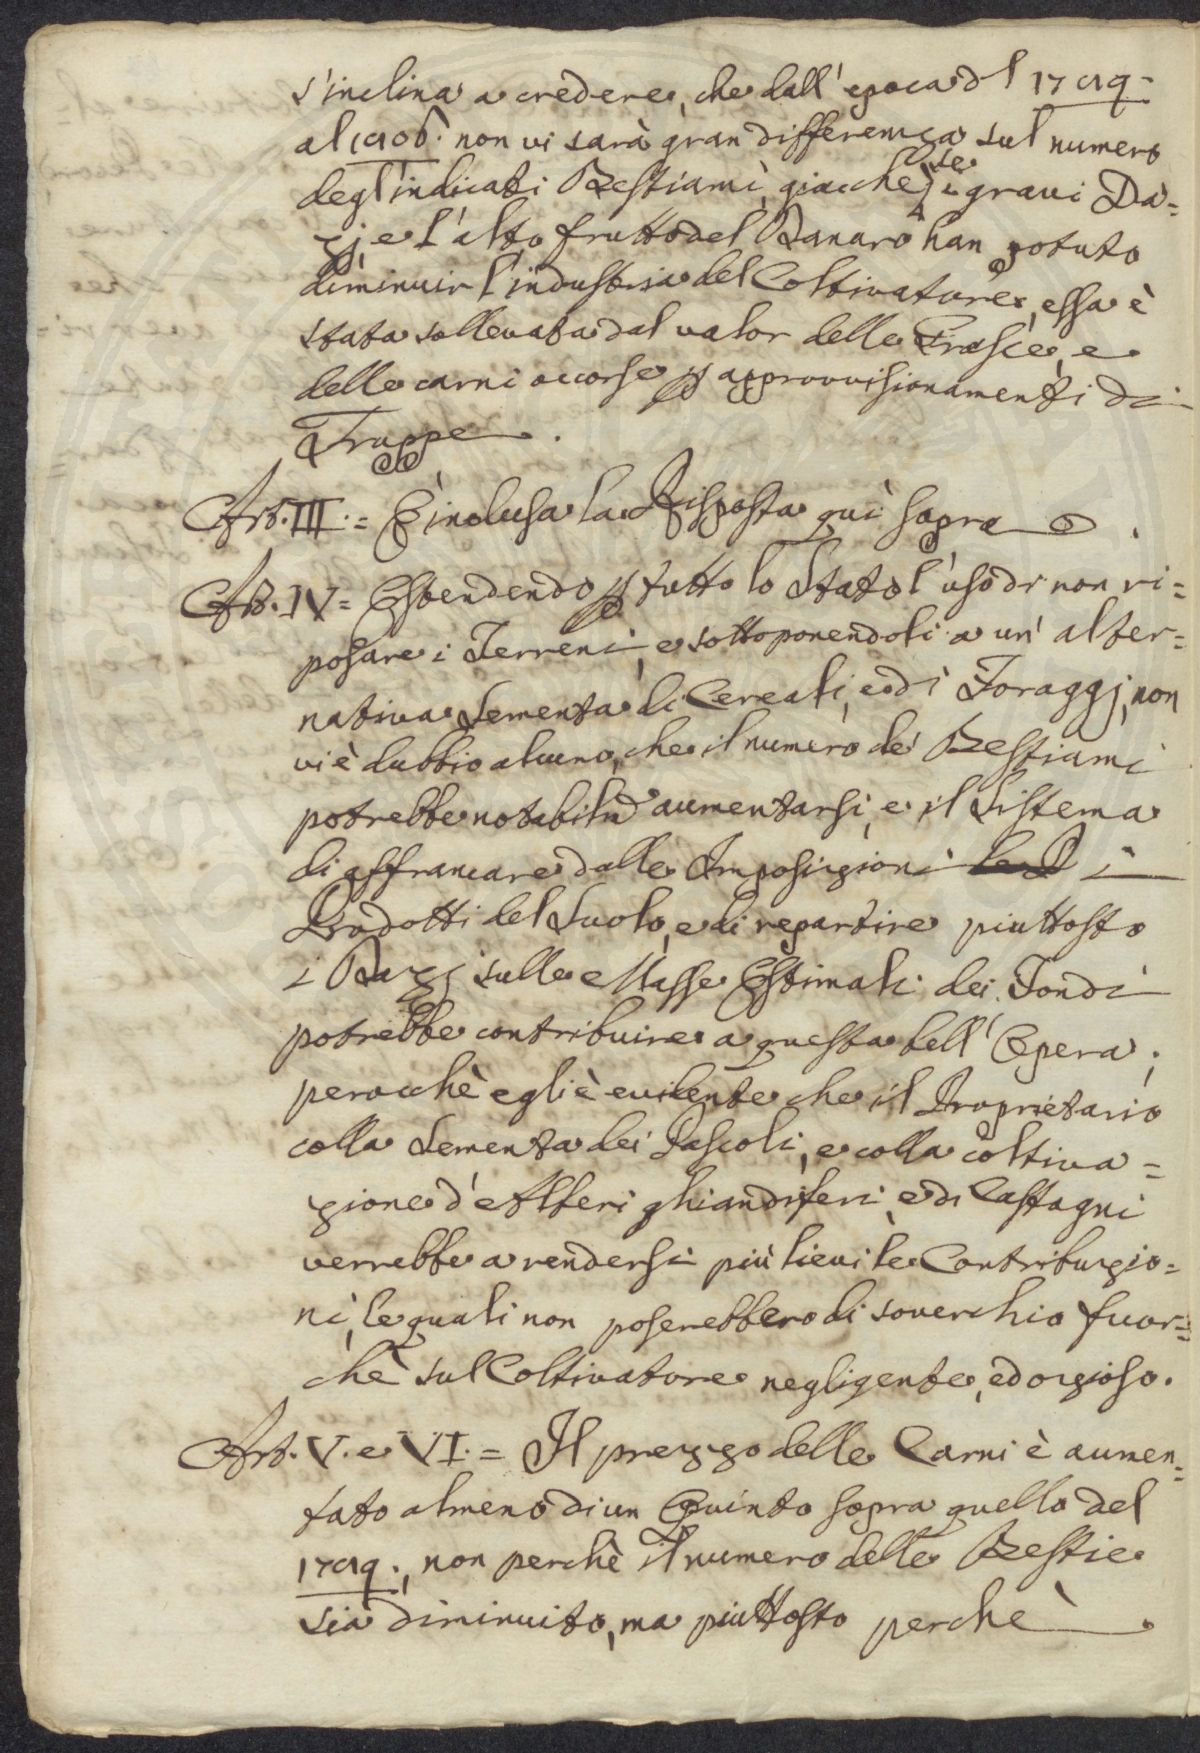 s'inclina a credere, che dall'epoca dl 1789.
al 1808. non vi sarà gran differenza sul numero
degl'indicati Bestiami, giacchè se i gravi Da=
zj e l'alto frutto del Danaro han potuto
diminuir l'industria del Coltivatore, essa è
stata sollevata dal valor delle Grascie, e
delle carni occorse p approvvisionamenti di
Truppe.
Art. III. = È inclusa la Risposta quì sopra.
Art. IV = Estendendo p tutto lo Stato l'uso di non ri=
posare i Terreni, e sottoponendoli a un' alter=
nativa Sementa di Cereali, e di Foraggj, non
vi è dubbio alcuno, che il numero de' Bestiami
potrebbe notabilm̃ aumentarsi, e il Sistema
di affrancare dalle Imposizioni i
Prodotti del Suolo, e di repartire piuttosto
i Dazj sulle Masse Estimali dei Fondi
potrebbe contribuire a questa bell'Opera;
perocchè egli è evidente che il Proprietario
colla Sementa dei Pascoli, e colla coltiva=
zione d'Alberi ghiandiferi, e di Castagni
verrebbe a rendersi più lievi le Contribuzio=
ni, le quali non poserebbero di soverchio fuor=
chè sul Coltivatore negligente, ed ozioso.
Art. V. e VI. = Il prezzo delle Carni è aumen=
tato almeno di un Quinto sopra quello del
1789., non perchè il numero delle Bestie
sia diminuito, ma piuttosto perchè